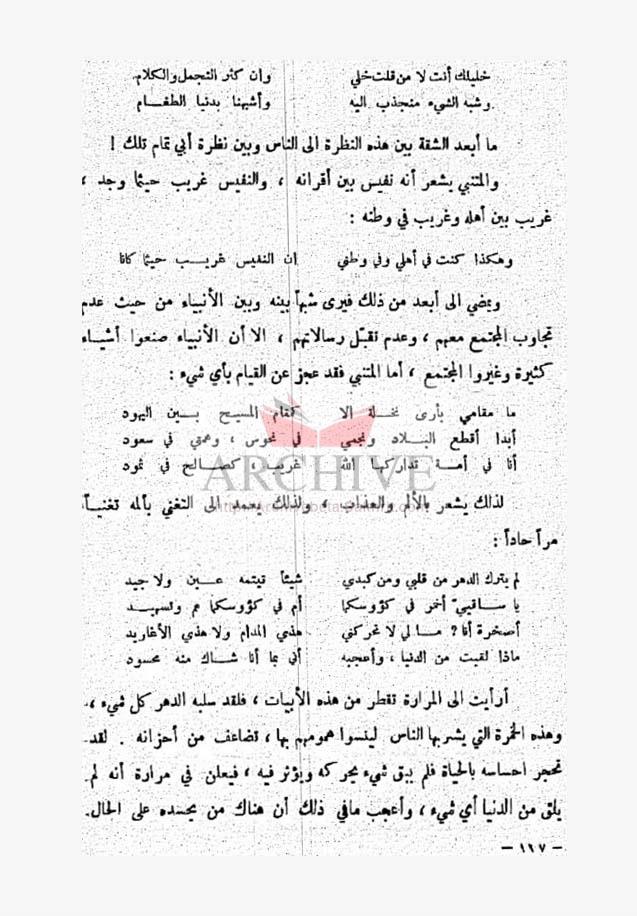 خليلك أنت لا من قلت خلي وان كثر التجمل والكلام
وشبه الشيء منجذب اليه وأشبهنا بدنيا الطغام
ما أبعد الشقة بين هذه النظرة الى الناس وبين نظرة أبي تمام تلك !
والمتنبي يشعر أنه نفيس بين أقرانه ، والنفيس غريب حيثما وجد ،
غريب بين أهله وغريب في وطنه :
وهكذا كنت في أهلي وفي وطني ان النفيس غريب حيثما كانا
ويمضي الى أبعد من ذلك فيرى شبهاً بينه وبين الأنبياء من حيث عدم
تجاوب المجتمع معهم ، وعدم تقبّل رسالاتهم ، الا أن الأنبياء صنعوا أشياء
كثيرة وغيروا المجتمع ، أما المتنبي فقد عجز عن القيام بأي شيء :
ما مقامي بأرى نخلة الا كمقام المسيح بين اليهود
أبدا أقطع البلاد ونجمي في نحوس ، وهمتي في سعود
أنا في أمة تداركها الله غريب ، كصالح في ثمود
ARCHIVE
لذلك يشعر بالألم والعذاب ، ولذلك يعمد الى التغني بألمه تغنياً
مراً حاداً :
لم يترك الدهر من قلبي ومن كبدي شيئاً تيتمه عين ولا جيد
يا ساقييّ أخمر في كؤوسكما أم في كؤوسكما هم وتسهيد
أصخرة أنا ? مالي لا تحركني هذي المدام ولا هذي الأغاريد
ماذا لقيت من الدنيا ، وأعجبه أني بما أنا شاك منه محسود
أرأيت الى المرارة تقطر من هذه الأبيات ، فلقد سلبه الدهر كل شيء ،
وهذه الخمرة التي يشربها الناس لينسوا همومهم بها ، تضاعف من أحزانه . لقد
تحجر احساسه بالحياة فلم يبق شيء يحركه ويؤثر فيه ، فيعلن في مرارة أنه لم
يلق من الدنيا أي شيء ، وأعجب مافي ذلك أن هناك من يحسده على الحال.
– ١١٧ –